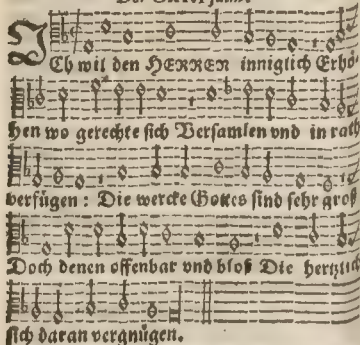 JCh wil den HERREN inniglich Erhö-
hen wo gerechte sich Versamlen vnd in rath
verfügen: Die wercke Gottes sind sehr groß
Doch denen offenbar vnd bloß Die hertzlich
sich daran vergnügen.